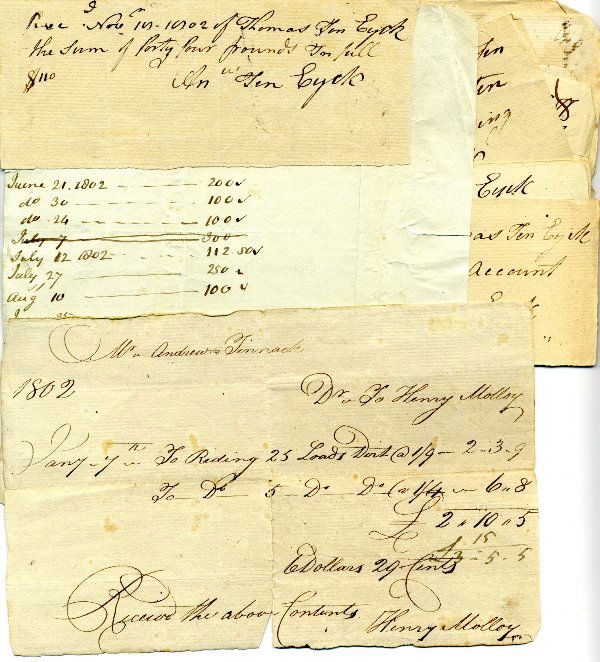 Rec.d Nov.r 10 - 1802 of Thomas Ten Eyck
the Sum of forty four pounds In full
$110 An.w Ten Eyck
Ten
ing
Eyck
as Ten Eyck
Account
June 21. 1802 200
do 30 100
do 24 100
July 7 300
July 12 1802 112 50
July 27 250
Aug 10 100
Mr. Andrew Tinnack
1802 Dr. To Henry Molloy
Jany - 7th To Rieding 25 Loads Dirt @ 1/9 - 2 - 3 - 9
To Do 5 Do Do @ 1/4 6 " 8
£ 2 " 10 " 5
15
£ 3 - 5 - 5
6 Dollars 29 Cents
Receivd the above Contents
Henry Molloy